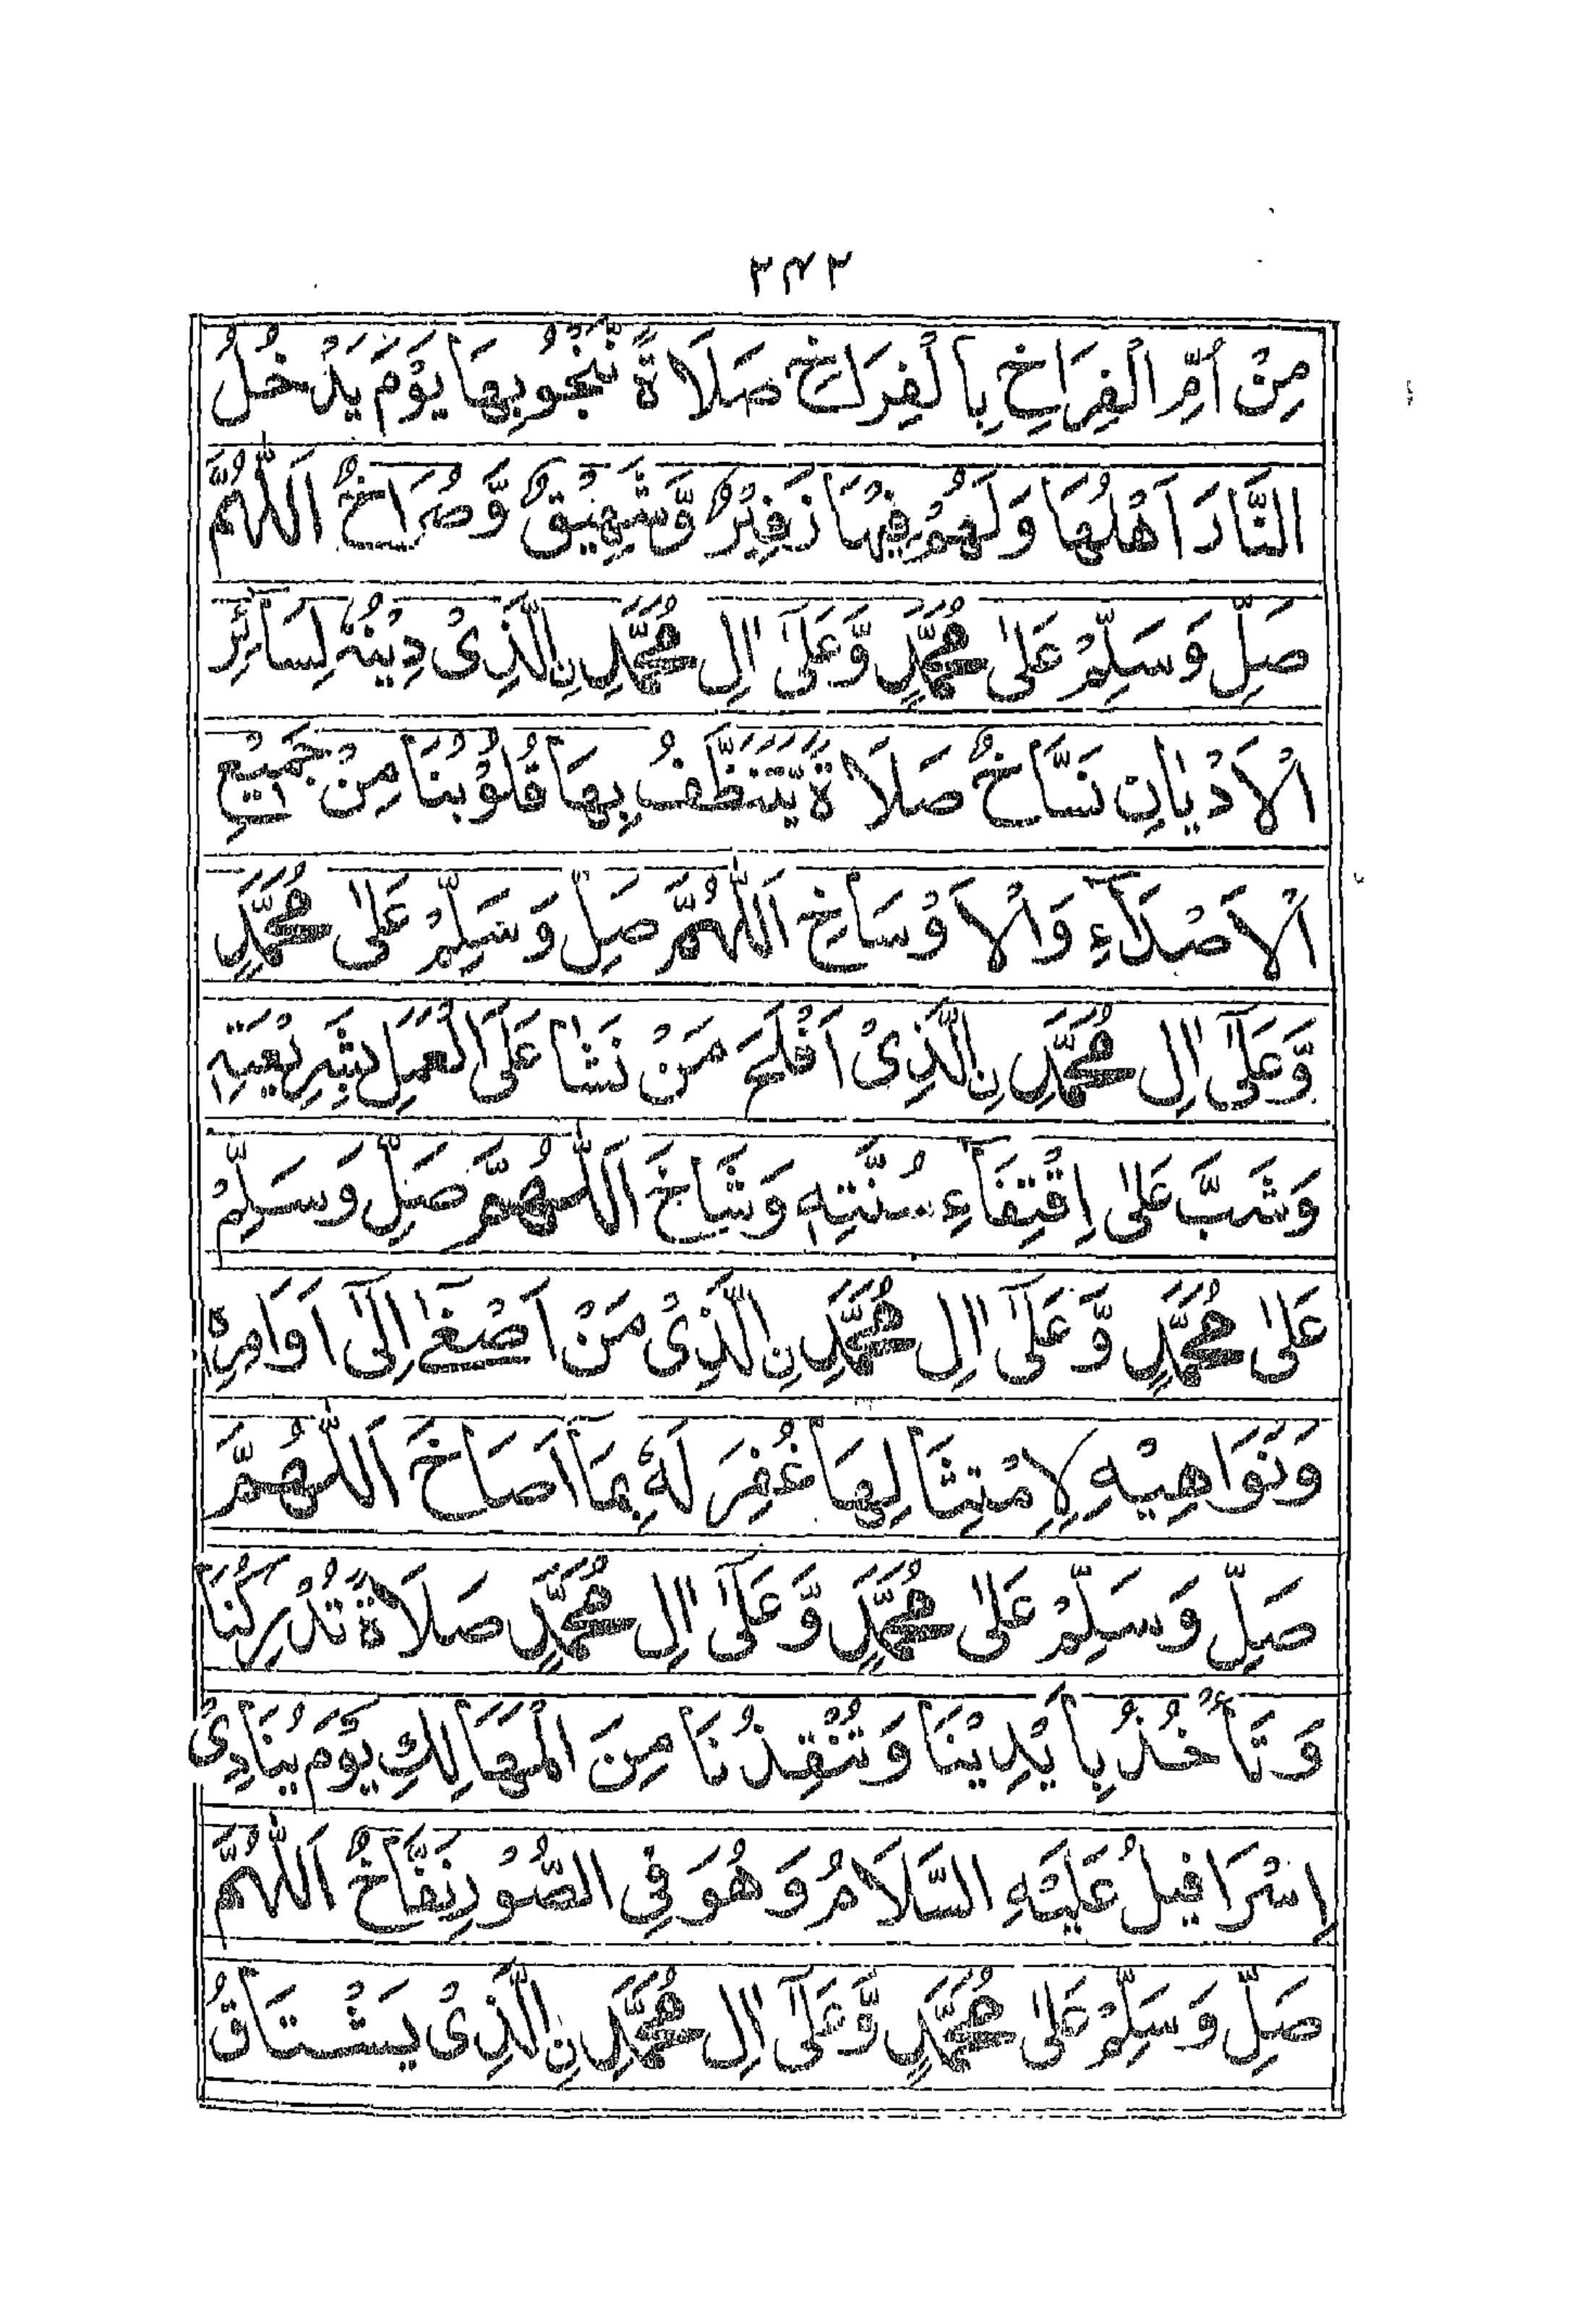 ٢٧٢
مِنْ اُمِّ الْفِرَاخِ بِالْفِرَاخِ صَلَاةً نَّنْجُوْ بِهَا يَوْمَ يَدْخُلُ
النَّارَ اَهْلُهَا وَلَهُمْ فِيْهَا زَفِيْرٌ وَّشَهِيْقٌ وَّصُرَاخٌ اَللّٰهُمَّ
صَلِّ وَسَلِّمْ عَلٰى مُحَمَّدٍ وَّعَلٰٓى اٰلِ مُحَمَّدِ نِ الَّذِىْ دِيْنُهٗ لِسَآئِرِ
الْاَدْيَانِ نَسَّاخٌ صَلَاةً يَّتَنَظَّفُ بِهَا قُلُوْبُنَا مِنْ جَمِيْعِ
الْاَصْدَآءِ وَالْاَوْسَاخِ اَللّٰهُمَّ صَلِّ وَسَلِّمْ عَلٰى مُحَمَّدٍ
وَّعَلٰٓى اٰلِ مُحَمَّدِ نِ الَّذِىْ اَفْلَحَ مَنْ نَشَا عَلَى الْعَمَلِ بِشَرِيْعَتِهٖ
وَشَبَّ عَلٰى اِقْتِفَآءِ سُنَّتِهٖ وَشَاخَ اَللّٰهُمَّ صَلِّ وَسَلِّمْ
عَلٰى مُحَمَّدٍ وَّعَلٰٓى اٰلِ مُحَمَّدِ نِ الَّذِىْ مَنْ اَصْغٰٓى اِلٰٓى اَوَامِرِهٖ
وَنَوَاهِيْهِ لِاِمْتِثَالِهَا غُفِرَ لَهٗ بِمَا اَصَاخَ اَللّٰهُمَّ
صَلِّ وَسَلِّمْ عَلٰى مُحَمَّدٍ وَّعَلٰٓى اٰلِ مُحَمَّدٍ صَلَاةً تُدْرِكُنَا
وَتَأْخُذُ بِاَيْدِيْنَا وَتُنْقِذُنَا مِنَ الْمَهَالِكِ يَوْمَ يُنَادِىْ
اِسْرَافِيلُ عَلَيْهِ السَّلَامُ وَهُوَ فِى الصُّوْرِ نَفَّاخٌ اَللّٰهُمَّ
صَلِّ وَسَلِّمْ عَلٰى مُحَمَّدٍ وَّعَلٰٓى اٰلِ مُحَمَّدِ نِ الَّذِىْ يَشْتَاقُ